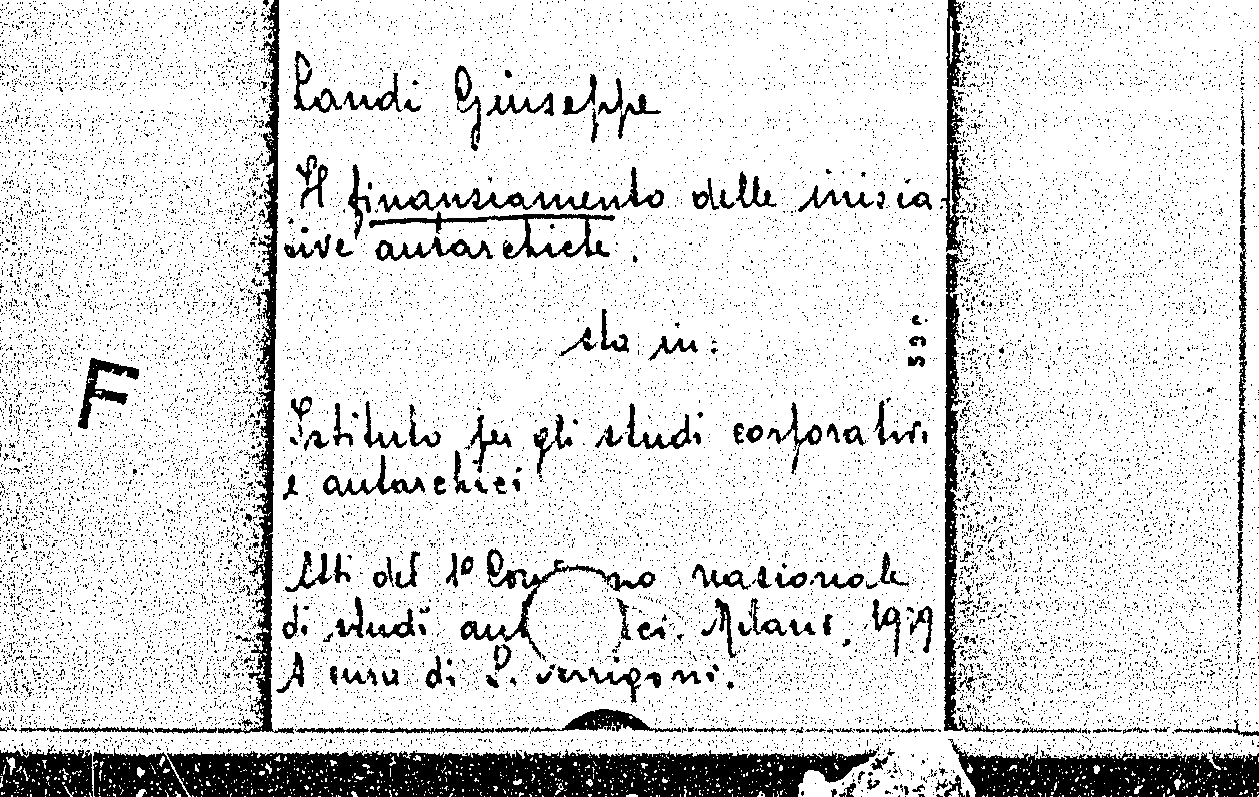 Landi Giuseppe
Il finanziamento delle inizia-
tive autarchiche.
sta in:
Istituto per gli studi corporativi
e autarchici
F
Atti del 1º nazionale
di studi Milano, 1939
A cura di